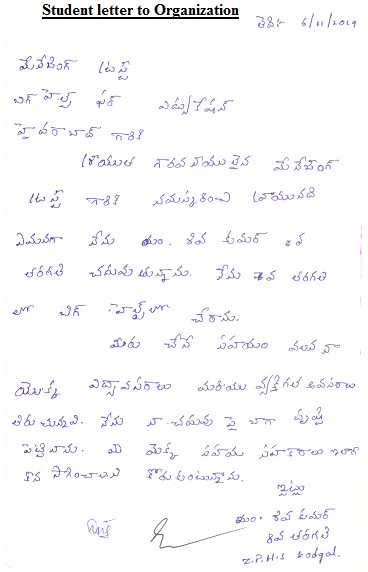 Student letter to Organization
తేది:- 6/11/2019
మేనేజింగ్ ట్రస్టీ
బిగ్ హెల్ప్ ఫర్ ఎడ్యుకేషన్
హైదరాబాద్ గారికి
శ్రీయుత గౌరవనీయులైన మేనేజింగ్
ట్రస్టీ గారికి నమస్కరించి వ్రాయునది
ఏమనగా నేను యం. శివ కుమార్ 8వ
తరగతి చదువుతున్నాను. నేను 8వ తరగతి
లో బిగ్ హెల్ప్ లో చేరాను.
మీరు చేసే సహాయం వలన నా
యొక్క విద్యావసరాలు మరియు వ్యక్తిగత అవసరాలు
తీరుచున్నవి. నేను నా చదువు పై బాగా దృష్టి
పెట్టినాను. మీ యొక్క సహాయ సహకారాలు ఇలాగే
కొన సాగించాలని కోరుకుంటున్నాను.
ఇట్లు
యం. శివ కుమార్
8వ తరగతి
Z.P.H.S Kodgal.